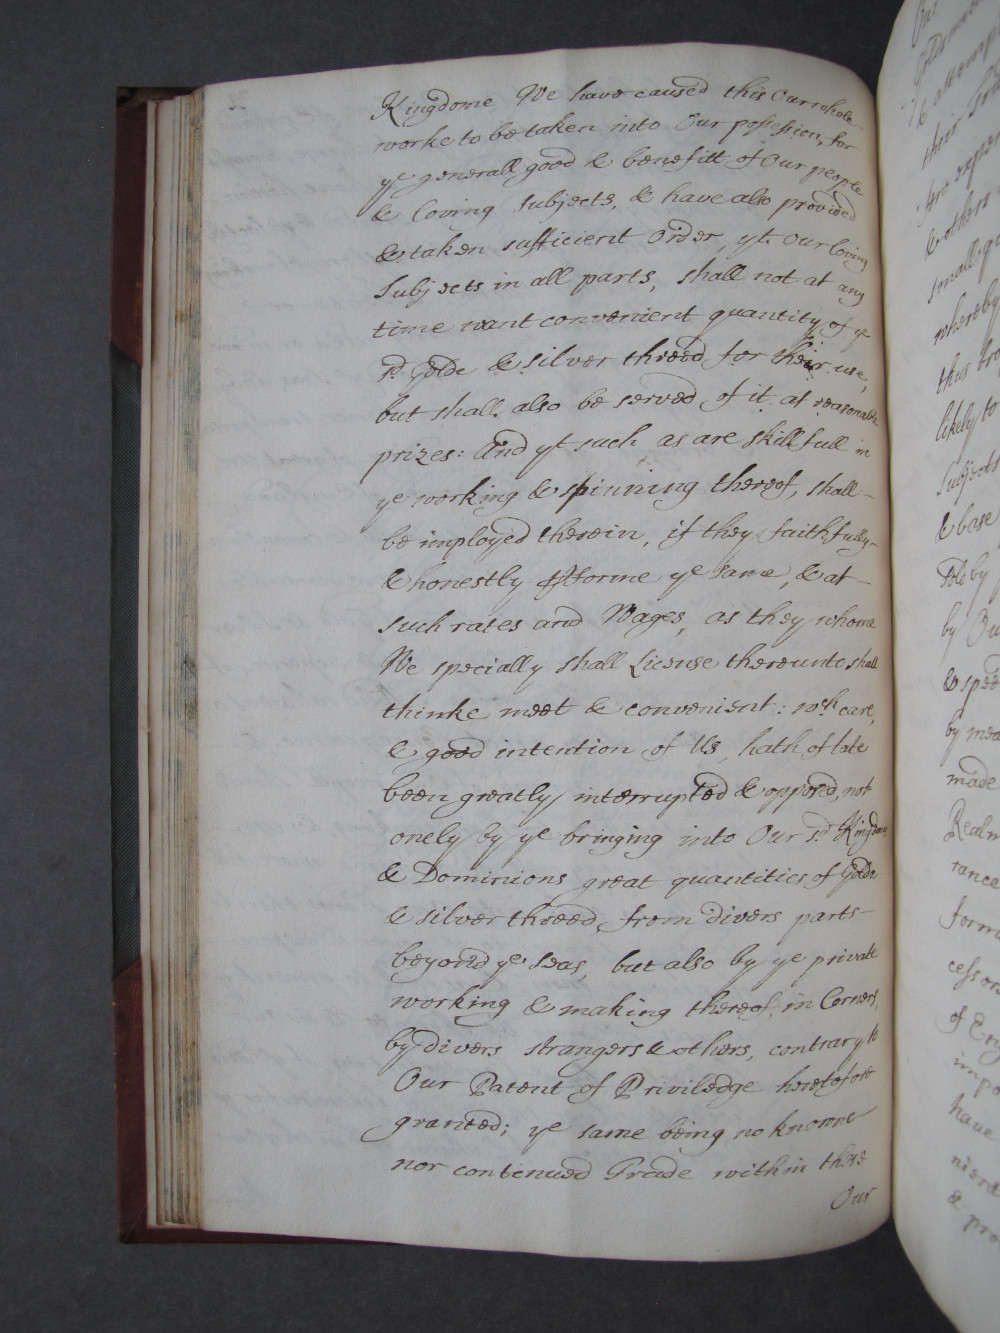 Kingdome We have caused this Our whole
worke to be taken into Our possession, for
ye generall good & benefitt of Our people
& loving Subjects, & have also provided
& taken sufficient Order, yt Our loving
Subjects in all parts, shall not at any
time want convenient quantity of ye
sd. Golde & silver threed for their use,
but shall also be served of it at reasonable
prizes: And yt such as are skillfull in
ye working & spinning thereof, shall
be imployed therein, if they faithfully
& honestly pforme ye same, & at
such rates and Wages, as they whome
We specially shall License thereunto shall
thinke meet & convenient: wch care,
& good intention of Us, hath of late
been greatly interrupted & opposed, not
onely by ye bringing into Our sd. Kingdome
& Dominions great quantities of Golde
& silver threed, from divers parts
beyond ye seas, but also by ye private
working & making thereof in Corners,
by divers strangers & others, contrary to
Our Patent of Priviledge heretofore
granted; ye same being no knowne
nor continued Trade within there
Our
Our
this
& others
whereby
thus
likely to
Subjects
& base
sold by
by Our
made
Realm
of
have
& pro